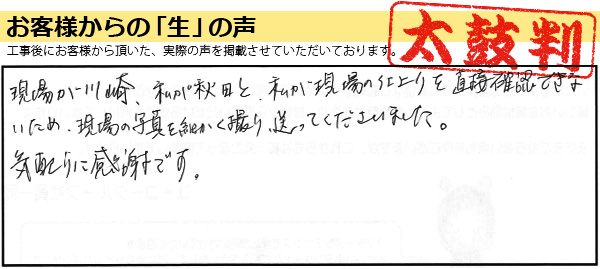 お客様からの「生」の声
太鼓判
工事後にお客様から頂いた、実際の声を掲載させていただいております。
現場が川崎、私が秋田と、私が現場の仕上りを直接確認できな
いため、現場の写真を細かく撮り、送ってくださいました。
気配りに感謝です。